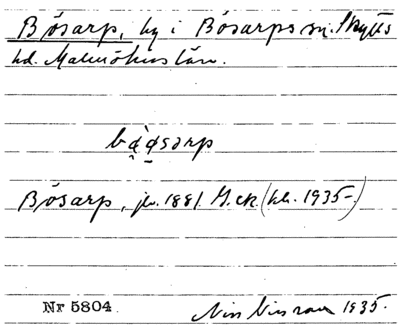 Bösarp, by i Bösarps sn. Skytts
hd. Malmöhus län.
bö̀ösarp
Bösarp, jb. 1881. G.ek. (kl. 1935-)
Nr 5804 Nils Nilsson 1935.